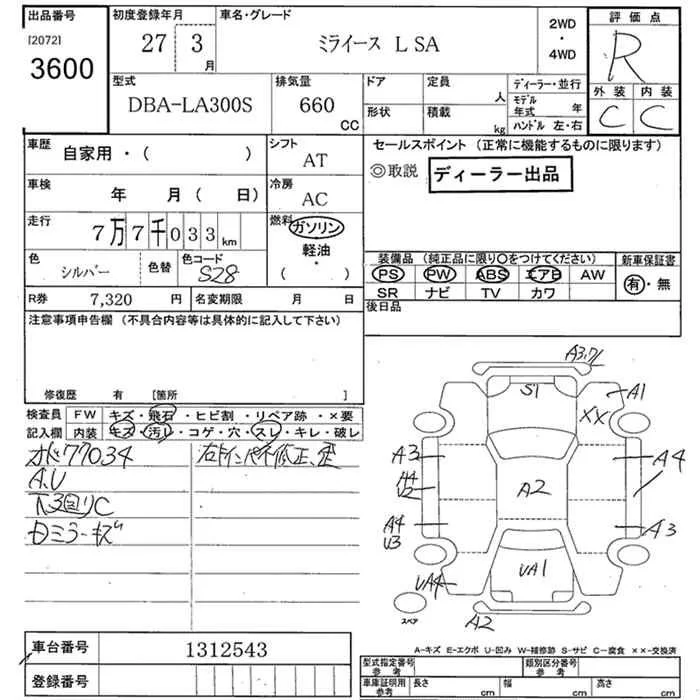 出品番号 初度登録年月 車名・グレード 2WD ・ 4WD 評価点
[2072]
3600 27 3月 ミライース L SA R
型式 排気量 ドア 定員 人 ディーラー・並行 外装 内装
DBA-LA300S 660 CC 形状 積載 kg モデル年式 年 C C
ハンドル 左・右
車歴 自家用・( ) シフト AT セールスポイント (正常に機能するものに限ります)
◎取説 ディーラー出品
車検 年 月 ( 日) 冷房 AC
走行 7万7千033km 燃料 ガソリン
軽油
・
( )
色 シルバー 色替 色コード S28
装備品 (純正品に限り○をつけてください) 新車保証書
PS PW ABS エアB AW 有・無
SR ナビ TV カワ
R券 7,320 円 名変期限 月 日 後日品
注意事項申告欄 (不具合内容等は具体的に記入して下さい)
修復歴 有 [箇所 ]
検査員 FW キズ・飛石・ヒビ割・リペア跡・×要
記入欄 内装 キズ・汚レ・コゲ・穴・スレ・キレ・破レ
オド77034
A.U
下回りC
ミラーキズ
A1
S1
XX
A3 A4
A4
U2
A2
A4
U3 A3
UA4 UA1
スペア A2
A-キズ E-エクボ U-凹み W-補修跡 S-サビ C-腐食 ××-交換済
車台番号 1312543
登録番号
型式指定番号 参考 類別区分番号 参考
車庫証明用 参考 長さ cm 幅 cm 高さ cm